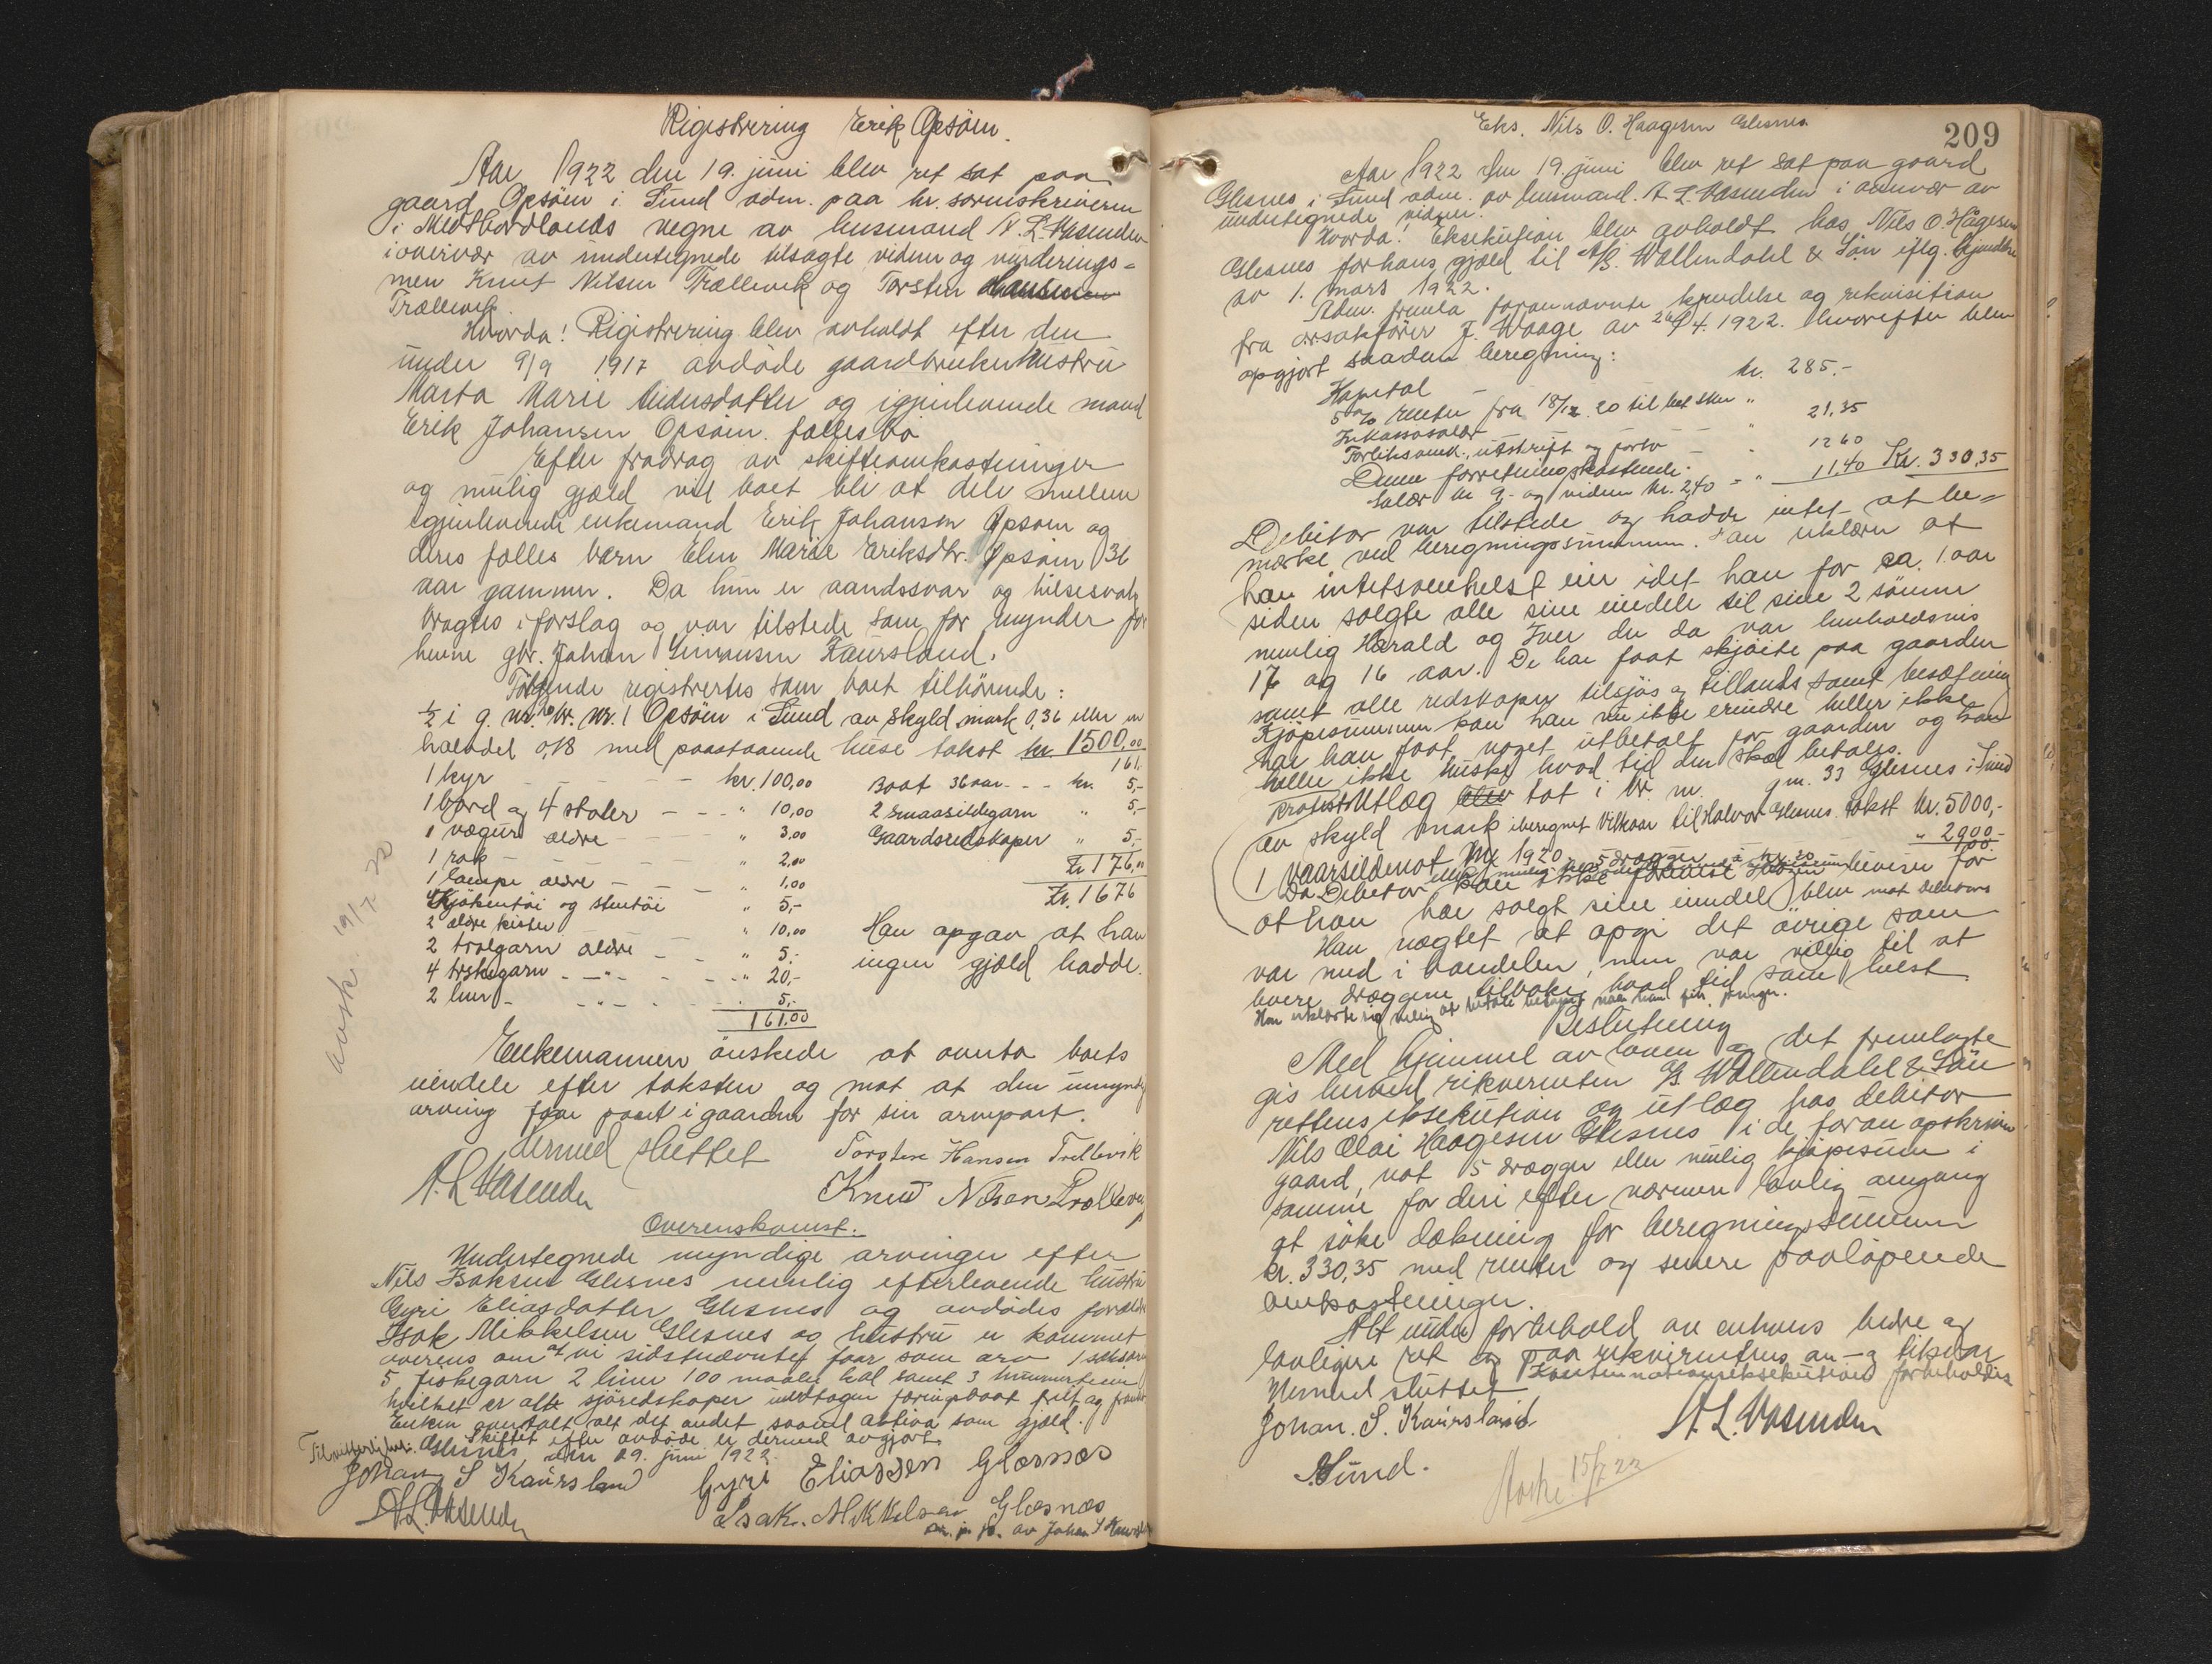 Rigistrering Erik Opsöin.
Aar 1922 den 19. juni blev ret sat paa
gaard Opsöien i Sund adm. paa hr. sorenskriveren
i Midthordlands vegne av lensmand A. L. Vasenden
i overvær av undertegnede tilsagte vidner og vurderings-
men Knut Nilsen Trællevik og Torsten Hansen
Trællevik.
Hvorda! Rigistrering blev avholdt efter den
under 9/9 1917 avdöde gaardbrukerhustru
Marta Marie og igjenlevende mand
Erik Johansen Opsöin fællesbo
Efter fradrag av skifteomkostninger
og mulig gjæld vil boet bli at dele mellem
igjenlevende enkemand Erik Johansen Opsöin og
deres fælles barn Elen Marie Eriksdtr. Opsöin 36
aar gammen. Da hun er aandssvak og
bragtes i forslag og var tilstede som for mynder for
henne gbr. Johan Simonsen Kaursland.
Fölgende registrertes som boet tilhörende:
1/2 i g. nr. br. nr. 1 Opsöin i Sund av skyld mark 0,36 eller en
halvdel 0,18 med paastaaende huse takst kr. 1500,00
161.
1 kyr kr. 100,00 Baat 36 aar - - kr. 5,-
1 bord og 4 stoler - - " 10,00 2 smaasildegarn " 5,-
1 vægur ældre " 3,00 Gaardsredskaper " 5,-
1 rok " 2,00 kr 176,00
1 lampe ældre - " 1,00 Kr. 1676
Kjökentöi og stentöi " 5,-
2 ældre kister " 10,00 Han opgav at han
2 trolgarn ældre - " 5.- ingen gjæld hadde.
4 torskegarn - " - " 20,-
2 liner - " - 5,-
161,00
Enkemannen önskede at overta boets
eiendele efter taksten og mot at den umyndige
arving faar pant i gaarden for sin arvepart.
Dermed sluttet Torsten Hansen Trellevik
A. L. Vasenden Knud Nilsen Trollevik
Overenskomst.
Undertegnede myndige arvinger efter
Nils Isaksen Glesnes nemlig efterlevende hustru
Gyri Eliasdatter Glesnes og avdödes forældre
Isak Mikkelsen Glesnes og hustru er kommet
overens om at vi sidstnævnte faar som arv
5 fiskegarn 2 liner 100 maaler samt 3
hvilket er alle sjöredskaper undtagen föringsbaat frit og
Enken overtar alt det andet saavel aktiva som gjæld.
Skiftet efter avdöde er dermed avgjort.
Glesnes den 19. juni 1922.
Til vitterlighet:
Johan S Kaursland Gyri Eliassen Glæsnæs
A. L. Vasenden Isak. Mikkelsen Glæsnæs
m. p. p. av Johan S Kaursland
avsk. 19/7 22
Eks. Nils O. Haagesen Glesnes
209
Aar 1922 den 19. juni blev ret sat paa gaard
Glesnes i Sund adm. av lensmand A. L. Vasenden i overvær av
undertegnede vidner.
Hvorda! Eksekution blev avholdt hos Nils O. Hågesen
Glesnes for hans gjæld til A/S. Wallendahl & Sön iflg. kjendelse
av 1. mars 1922.
Adm. fremla forannævnte kjendelse og rekvisition
fra orsakförer J. Waage av 26/4. 1922. Hvorefter blev
opgjort saadan beregning:
Kapital - kr. 285.-
5% renter fra 18/12 20 til bet. sker " 21,35
Inkassosalær
Forliksomk., utskrift og porto - " 12 60
Denne forretningskostende:
Salær kr 9.- og vidner kr. 2,40 = " 11,40 Kr. 330,35
Debitor var tilstede og hadde intet at be-
mærke ved beregningssummen. Han erklærer at
han intetsomhelst eier idet han for ca. 1 aar
siden solgte alle sine eiendele til sine 2 sönner
nemlig Harald og Iver der da var henholdsvis
17 og 16 aar. De har faat skjöite paa gaarden
samt alle redskaper tilsjös og tillands samt besætning
Kjöpesummen kan han nu ikke erindre heller ikke
har han faat noget utbetalt for gaarden og han
heller ikke huske hvad tid den skal betales.
Utlæg blev tat i br. nr. g nr. 33 Glesnes i Sund
av skyld mark iberegnet Vilkaar til Halvor Glesnes takst kr. 5000,-
1 vaarsildenot fra 1920 " 2900-
5 drægger à kr. 20 100.-
Da Debitor ikke beviser for
at han har solgt sine eiendele blev mot debitors
Han nægtet at opgi det övrige som
var med i handelen, men var villig til at
levere dræggene tilbake hvad tid som helst
Han erklærte sig villig at betale belöpet naar han fik penger.
Beslutning
Med hjemmel av loven og det fremlagte
gis herved rekvirenten A/S Wallendahl & Sön
rettens eksekution og utlæg hos debitor
Nils Olai Haagesen Glesnes i de foran opskrevne
gaard, not 5 drægger eller mulig kjöpesum i
samme for deri efter nærmere lovlig omgang
at söke dækning for beregningssummen
kr. 330,35 med renter og senere paalöpende
omkostninger.
Alt under forbehold av enhvers bedre og
lovligere ret og paa rekvirentens an- og tilsvar
Kontinuationseksekution forbeholdes
Hermed sluttet
Johan. S. Kaursland A. L. Vasenden
Sund.
Avskr. 15/7 22